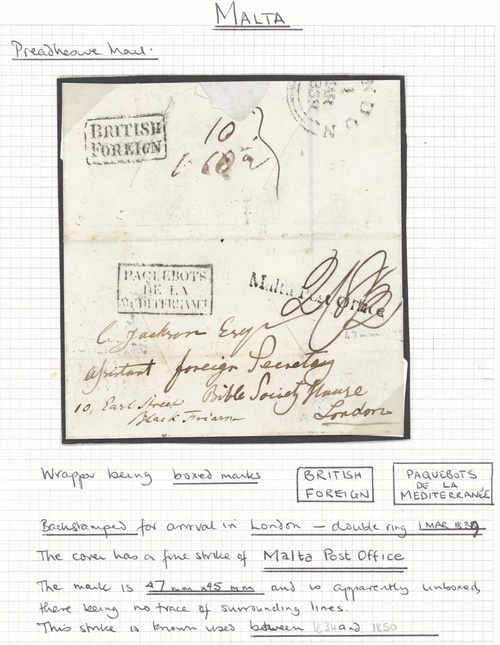 MALTA
Preadhesive Mail.
BRITISH
FOREIGN
10
LONDON
1 MAR
PAQUEBOTS
DE LA
MÉDITERRANÉE
Malta Post Office
C. Jackson Esqr
assistant foreign Secretary
10, Earl Street Bible Society House
Black Friars London
47mm
Wrapper being boxed marks BRITISH FOREIGN PAQUEBOTS DE LA MEDITERRANÉE
Backstamped for arrival in London – double ring 1 MAR 1839
The cover has a fine strike of Malta Post Office
The mark is 47 mm x45 mm and is apparently unboxed,
there being no trace of surrounding lines.
This strike is known used between 1834 and 1850